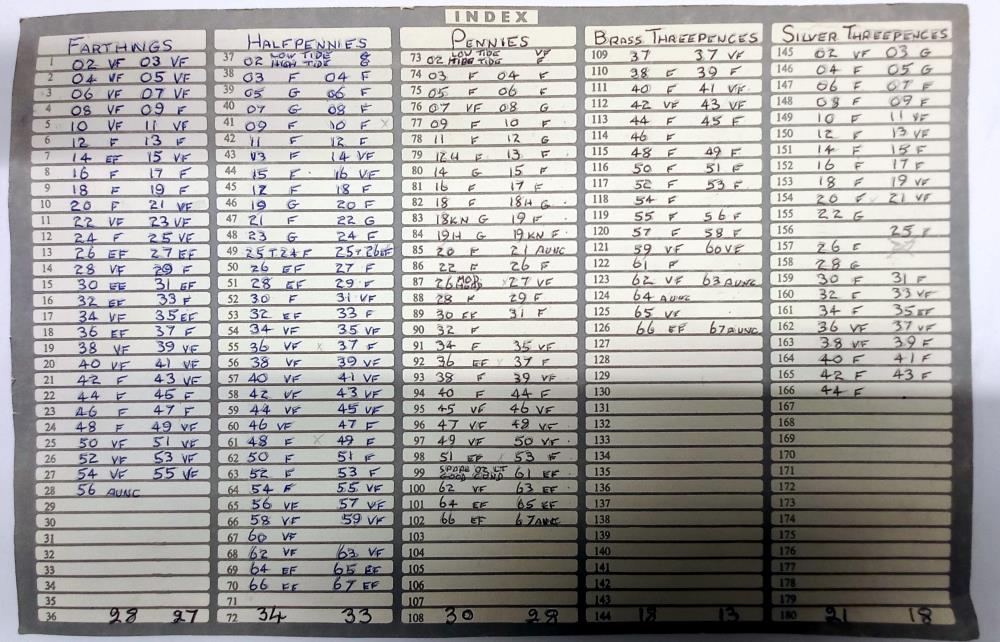 INDEX
FARTHINGS
1 02 VF 03 VF
2 04 VF 05 VF
3 06 VF 07 VF
4 08 VF 09 F
5 10 VF 11 VF
6 12 F 13 F
7 14 EF 15 VF
8 16 F 17 F
9 18 F 19 F
10 20 F 21 VF
11 22 VF 23 VF
12 24 F 25 VF
13 26 EF 27 EF
14 28 VF 29 F
15 30 EE 31 EF
16 32 EF 33 F
17 34 VF 35 EF
18 36 EF 37 F
19 38 VF 39 VF
20 40 VF 41 VF
21 42 F 43 VF
22 44 F 45 F
23 46 F 47 F
24 48 F 49 VF
25 50 VF 51 VF
26 52 VF 53 VF
27 54 VF 55 VF
28 56 AUNC
29
30
31
32
33
34
35
36 28 27
HALFPENNIES
37 02 LOW TIDE
HIGH TIDE
38 03 F 04 F
39 05 G 06 F
40 07 G 08 F
41 09 F 10 F X
42 11 F 12 F
43 13 F 14 VF
44 15 F 16 VF
45 17 F 18 F
46 19 G 20 F
47 21 F 22 G
48 23 G 24 F
49 25+24 F 25+26 EF
50 26 EF 27 F
51 28 EF 29 F
52 30 F 31 VF
53 32 EF 33 F
54 34 VF 35 VF
55 36 VF X 37 F
56 38 VF 39 VF
57 40 VF 41 VF
58 42 VF 43 VF
59 44 VF 45 VF
60 46 VF 47 F
61 48 F X 49 F
62 50 F 51 F
63 52 F 53 F
64 54 F 55 VF
65 56 VF 57 VF
66 58 VF 59 VF
67 60 VF
68 62 VF 63 VF
69 64 EF 65 EF
70 66 EF 67 EF
71
72 34 33
PENNIES
73 02 LOW TIDE VF
HIGH TIDE F
74 03 F 04 F
75 05 F 06 F
76 07 VF 08 G
77 09 F 10 F
78 11 F 12 G
79 12H F 13 F
80 14 G 15 F
81 16 F 17 F
82 18 F 18H G
83 18KN G 19 F
84 19H G 19KN F
85 20 F 21 AUNC
86 22 F 26 F
87 26 MOD HEAD X 27 VF
88 28 F 29 F
89 30 EF 31 F
90 32 F
91 34 F 35 VF
92 36 EF X 37 F
93 38 F 39 VF
94 40 F 44 F
95 45 VF 46 VF
96 47 VF 48 VF
97 49 VF 50 VF
98 51 EF 53 F
99 SPARE 02 LT GOOD COND 61 EF
100 62 VF 63 EF
101 64 EF 65 EF
102 66 EF 67 AUNC
103
104
105
106
107
108 30 28
BRASS THREEPENCES
109 37 37 VF
110 38 F 39 F
111 40 F 41 VF
112 42 VF 43 VF
113 44 F 45 F
114 46 F
115 48 F 49 F
116 50 F 51 F
117 52 F 53 F
118 54 F
119 55 F 56 F
120 57 F 58 F
121 59 VF 60 VF
122 61 F
123 62 VF 63 AUNC
124 64 AUNC
125 65 VF
126 66 EF 67 AUNC
127
128
129
130
131
132
133
134
135
136
137
138
139
140
141
142
143
144 18 13
SILVER THREEPENCES
145 02 VF 03 G
146 04 F 05 G
147 06 F 07 F
148 08 F 09 F
149 10 F 11 VF
150 12 F 13 VF
151 14 F 15 F
152 16 F 17 F
153 18 F 19 VF
154 20 F 21 VF
155 22 G
156 25 F
157 26 F
158 28 G
159 30 F 31 F
160 32 F 33 VF
161 34 F 35 EF
162 36 VF 37 VF
163 38 VF 39 F
164 40 F 41 F
165 42 F 43 F
166 44 F
167
168
169
170
171
172
173
174
175
176
177
178
179
180 21 18